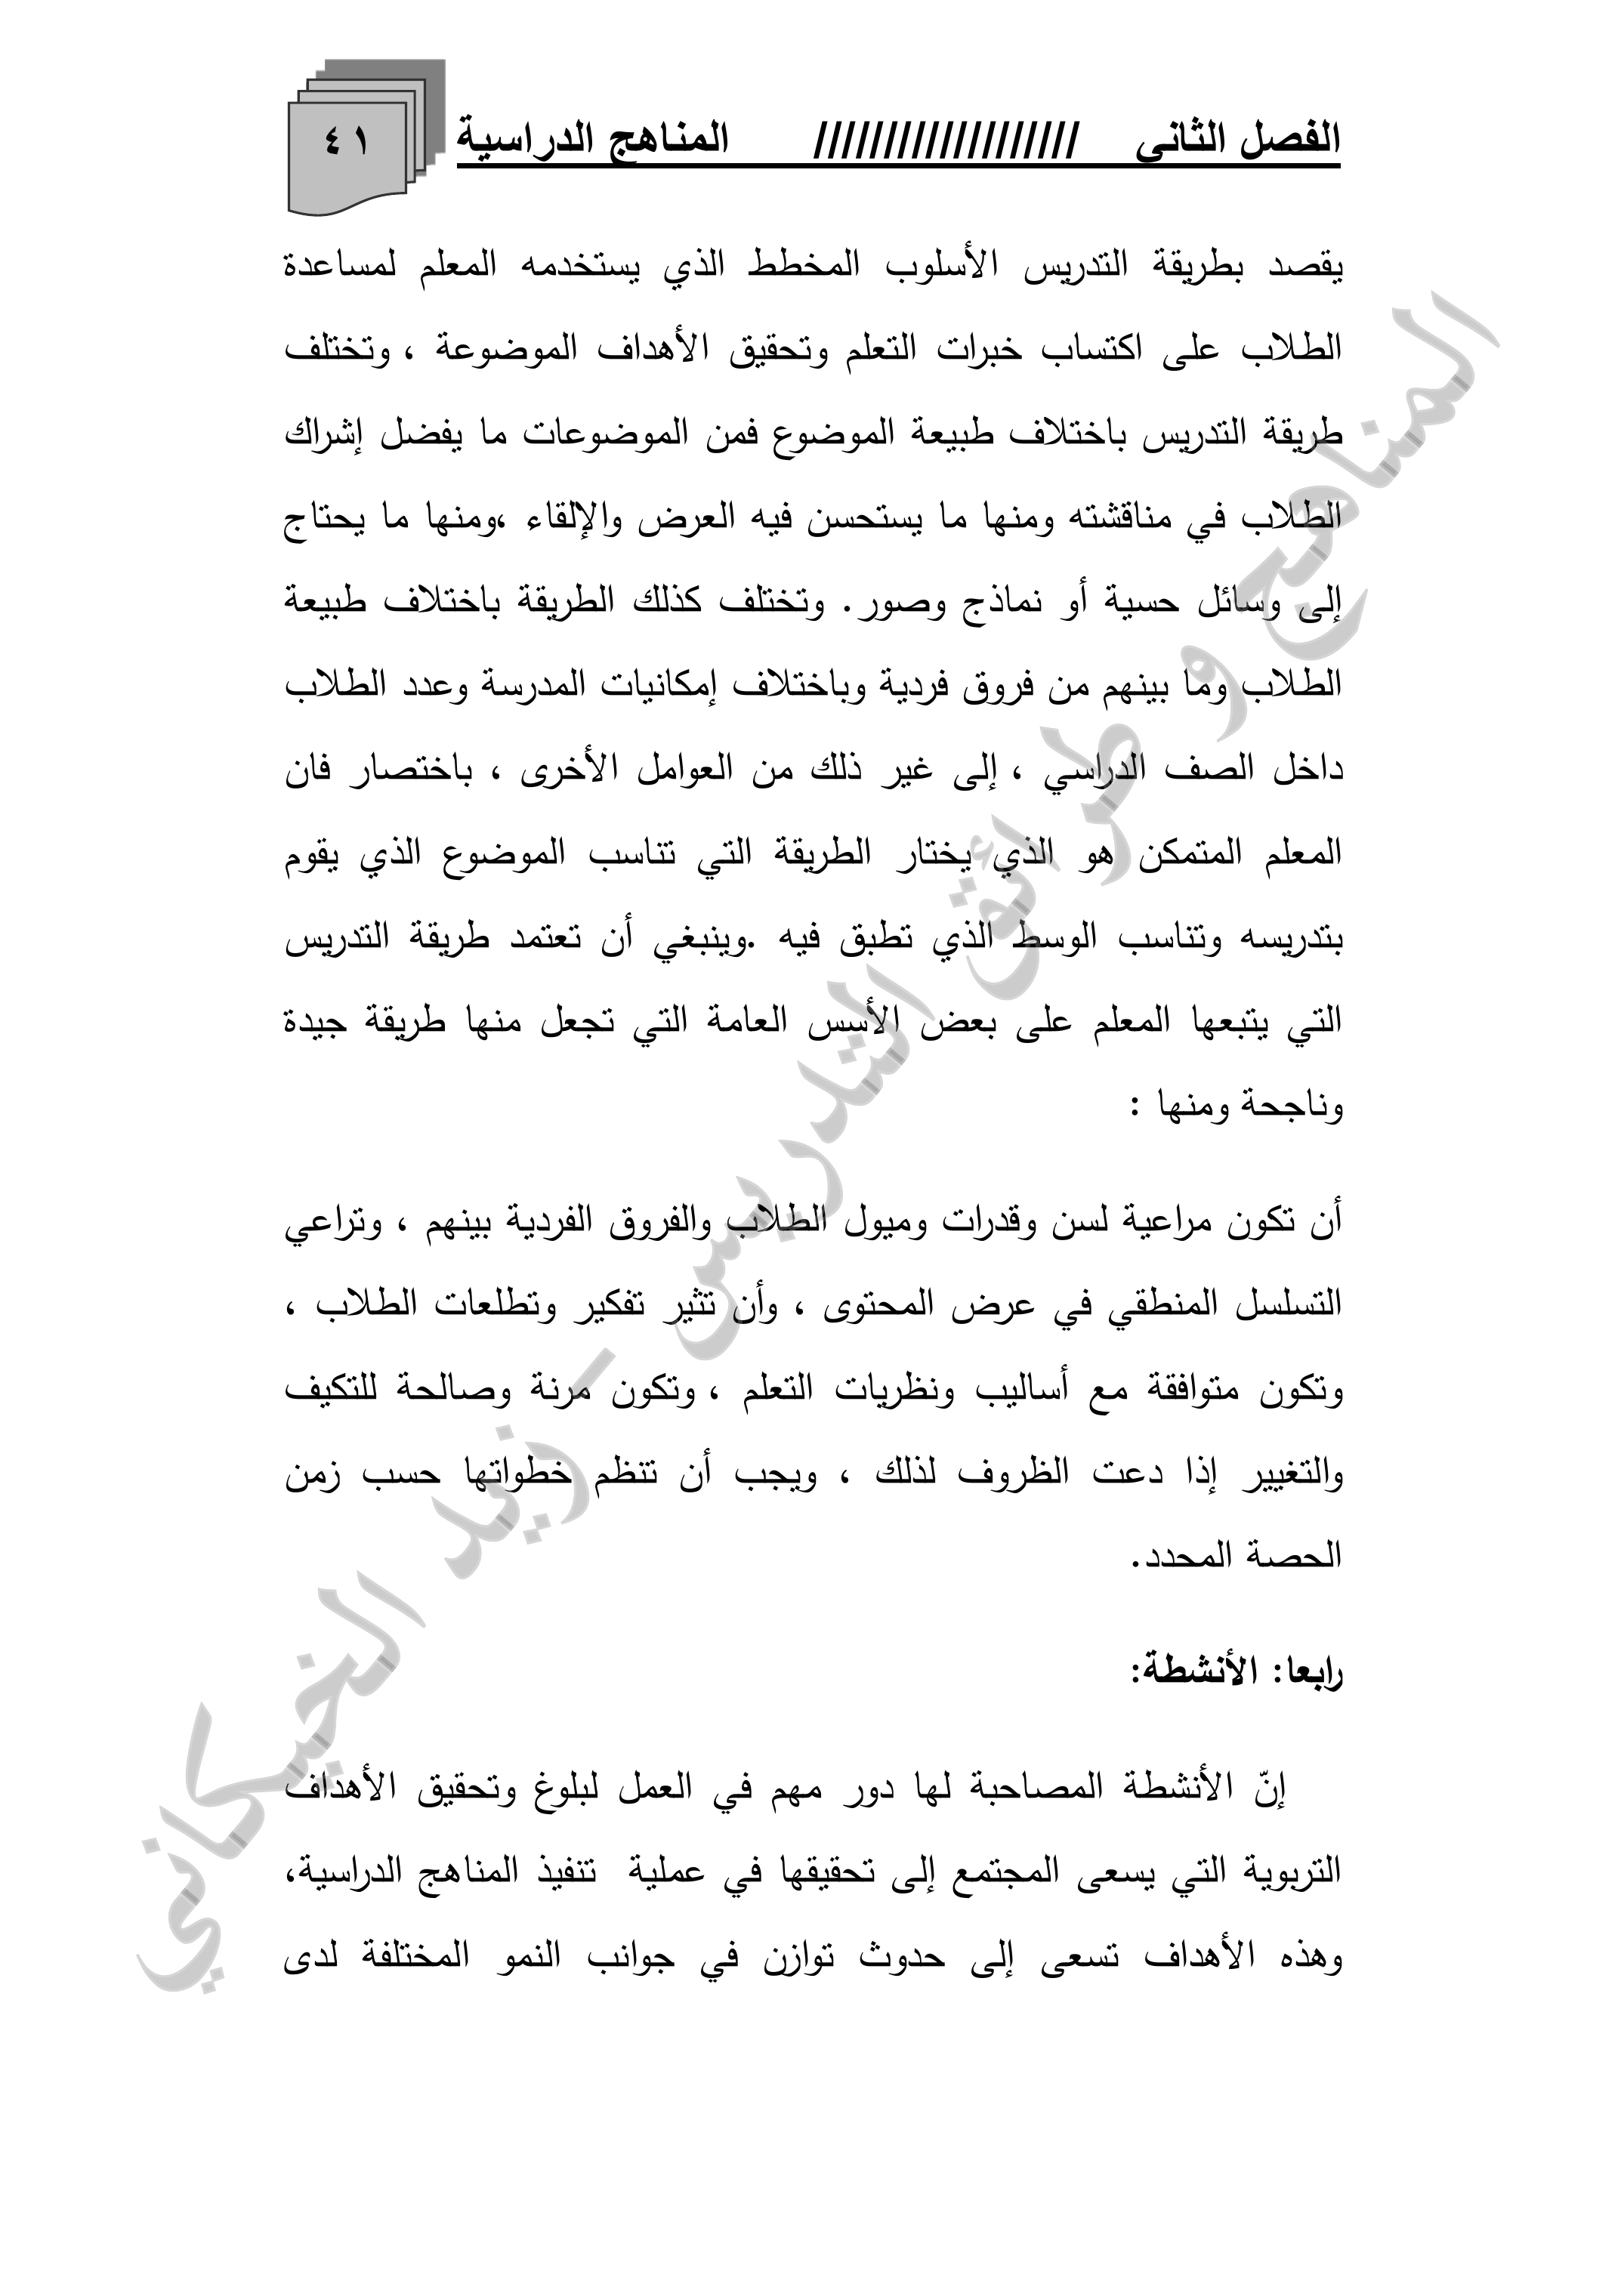 الفصل الثاني /////////////////// المناهج الدراسية ٤١
يقصد بطريقة التدريس الأسلوب المخطط الذي يستخدمه المعلم لمساعدة
الطلاب على اكتساب خبرات التعلم وتحقيق الأهداف الموضوعة ، وتختلف
طريقة التدريس باختلاف طبيعة الموضوع فمن الموضوعات ما يفضل إشراك
الطلاب في مناقشته ومنها ما يستحسن فيه العرض والإلقاء ،ومنها ما يحتاج
إلى وسائل حسية أو نماذج وصور. وتختلف كذلك الطريقة باختلاف طبيعة
الطلاب وما بينهم من فروق فردية وباختلاف إمكانيات المدرسة وعدد الطلاب
داخل الصف الدراسي ، إلى غير ذلك من العوامل الأخرى ، باختصار فان
المعلم المتمكن هو الذي يختار الطريقة التي تناسب الموضوع الذي يقوم
بتدريسه وتناسب الوسط الذي تطبق فيه .وينبغي أن تعتمد طريقة التدريس
التي يتبعها المعلم على بعض الأسس العامة التي تجعل منها طريقة جيدة
وناجحة ومنها :
أن تكون مراعية لسن وقدرات وميول الطلاب والفروق الفردية بينهم ، وتراعي
التسلسل المنطقي في عرض المحتوى ، وأن تثير تفكير وتطلعات الطلاب ،
وتكون متوافقة مع أساليب ونظريات التعلم ، وتكون مرنة وصالحة للتكيف
والتغيير إذا دعت الظروف لذلك ، ويجب أن تنظم خطواتها حسب زمن
الحصة المحدد.
رابعا: الأنشطة:
إنّ الأنشطة المصاحبة لها دور مهم في العمل لبلوغ وتحقيق الأهداف
التربوية التي يسعى المجتمع إلى تحقيقها في عملية تنفيذ المناهج الدراسية،
وهذه الأهداف تسعى إلى حدوث توازن في جوانب النمو المختلفة لدى
المناهج و طرائق التدريس - زيد الخيكاني